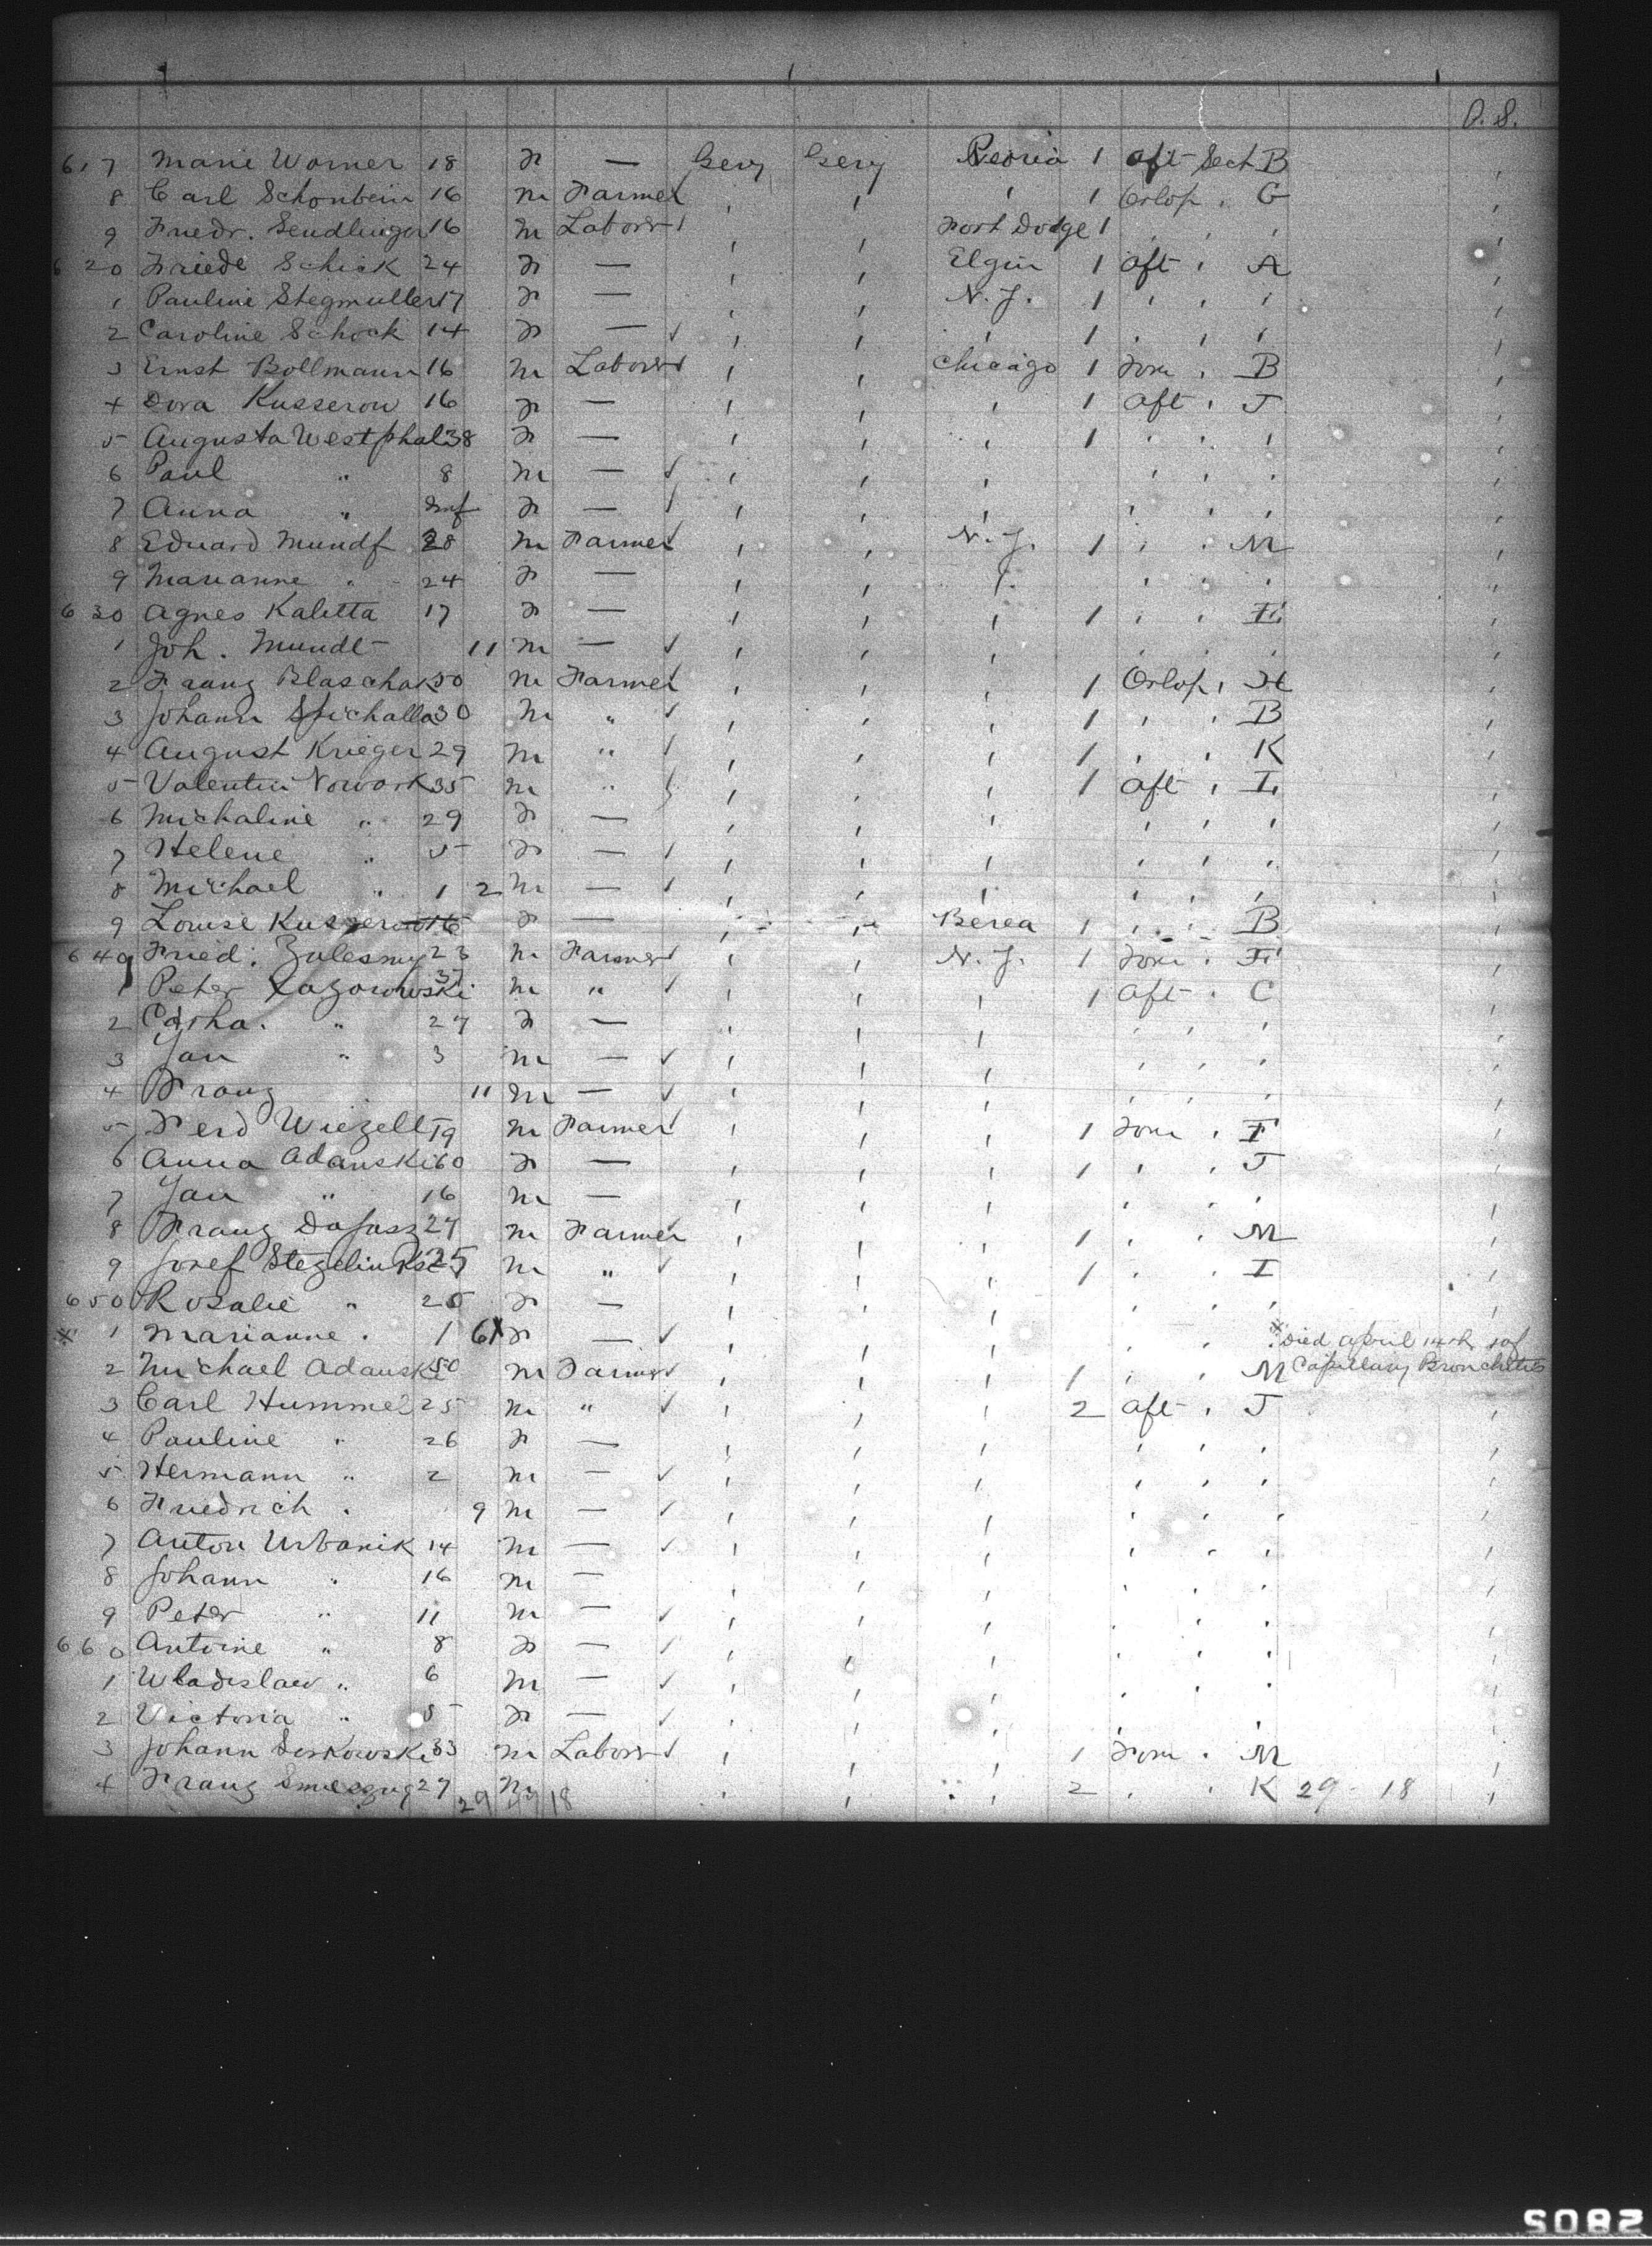 O.S.
617 Marie Worner 18 F — Gery Gery Peoria 1 aft Sect B
8 Carl Schonbein 16 m Farmer ' ' ' 1 Orlop " G
9 Friedr. Sendlinger 16 m Labor ' ' Fort Dodge 1 ' ' '
620 Friede Schick 24 F — ' ' Elgin 1 aft ' A
1 Pauline Stegmuller 17 F — ' ' N.Y. 1 ' ' '
2 Caroline Schock 14 F — ' ' ' 1 ' ' '
3 Ernst Bollmann 16 m Labor ' ' Chicago 1 Forw " B
4 Dora Kusserow 16 F — ' ' ' 1 aft ' J
5 Augusta Westphal 38 F — ' ' ' 1 ' ' '
6 Paul " 8 m — ' ' ' ' ' '
7 Anna " Inf F — ' ' ' ' ' '
8 Eduard Mundt 28 m Farmer ' ' N.Y. 1 ' ' M
9 Marianne " 24 F — ' ' ' ' ' '
630 Agnes Kaletta 17 F — ' ' ' 1 ' ' E
1 Joh. Mundt 11 m — ' ' ' ' ' '
2 Franz Blaschak 50 m Farmer ' ' ' 1 Orlop ' H
3 Johann Spichalla 30 m " ' ' ' 1 ' ' B
4 August Krieger 29 m " ' ' ' 1 ' ' K
5 Valentin Nowark 35 m " ' ' ' 1 aft ' I
6 Michaline " 29 F — ' ' ' ' ' '
7 Helene " 5 F — ' ' ' ' ' '
8 Michael " 1 2 m — ' ' ' ' ' '
9 Louise Kusserow 16 F — ' ' Berea 1 ' ' B
640 Fried. Zulesny 23 m Farmer ' ' N.Y. 1 Forw ' F
1 Peter Lazorowski 37 m " ' ' ' 1 aft ' C
2 Catha. " 27 F — ' ' ' ' ' '
3 Jan " 3 m — ' ' ' ' ' '
4 Franz 11 m — ' ' ' ' ' '
5 Ferd Wiezell 19 m Farmer ' ' ' 1 Forw ' F
6 Anna Adanski 60 F — ' ' ' 1 ' ' J
7 Jan " 16 m — ' ' ' ' ' '
8 Franz Dafasz 27 m Farmer ' ' ' 1 ' ' M
9 Josef Stezelinski 25 m " ' ' ' 1 ' ' I
650 Rosalie " 25 F — ' ' ' ' ' '
x 1 Marianne " 1 6 x F — ' ' ' ' ' x Died April 14th 1 of
2 Michael Adanski 50 m Farmer ' ' ' 1 ' ' M Capillary Bronchitis
3 Carl Hummel 25 m " ' ' ' 2 aft ' J
4 Pauline " 26 F — ' ' ' ' ' '
5 Hermann " 2 m — ' ' ' ' ' '
6 Friedrich " 9 m — ' ' ' ' ' '
7 Anton Urbanik 14 m — ' ' ' ' ' '
8 Johann " 16 m — ' ' ' ' ' '
9 Peter " 11 m — ' ' ' ' ' '
660 Antoine " 8 F — ' ' ' ' ' '
1 Wladislaw " 6 m — ' ' ' ' ' '
2 Victoria " 5 F — ' ' ' ' ' '
3 Johann 33 m Labor ' ' ' 1 Forw ' M
4 Franz 27 m ' ' ' 2 ' ' K 29 - 18
29 18
5082